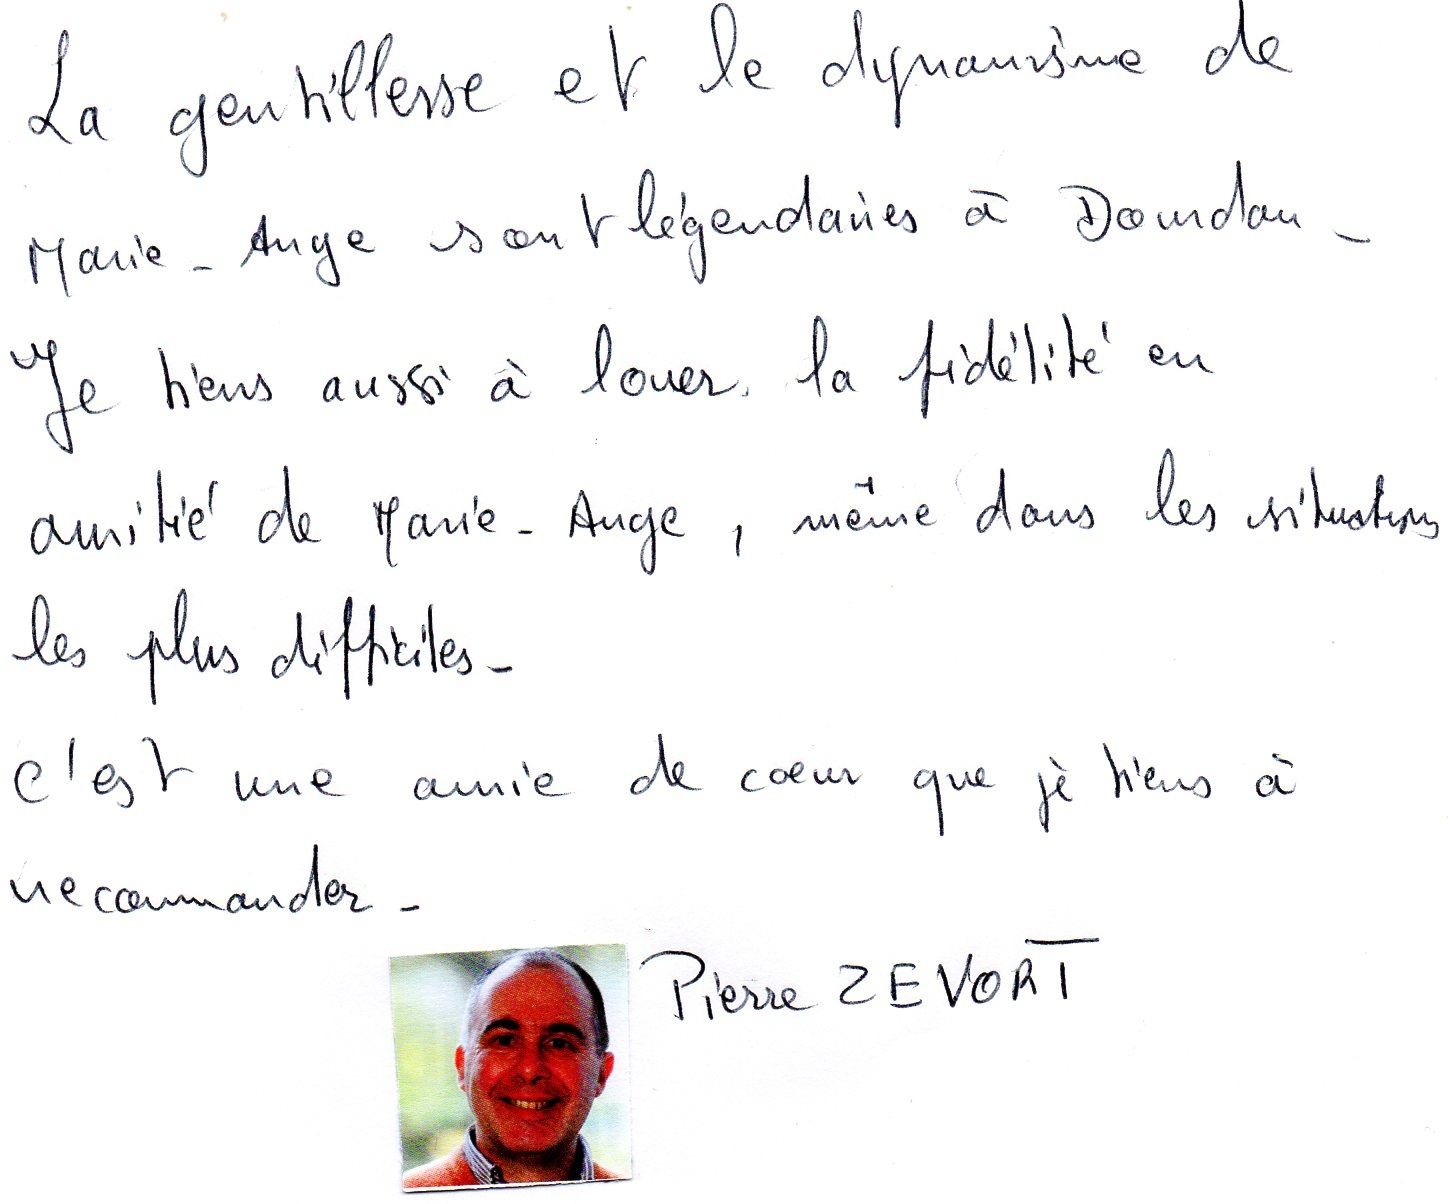 La gentillesse et le dynamisme de
Marie-Ange sont légendaires à Dourdan -
Je tiens aussi à louer la fidélité en
amitié de Marie-Ange, même dans les situations
les plus difficiles -
C'est une amie de coeur que je tiens à
recommander -
Pierre ZEVORT